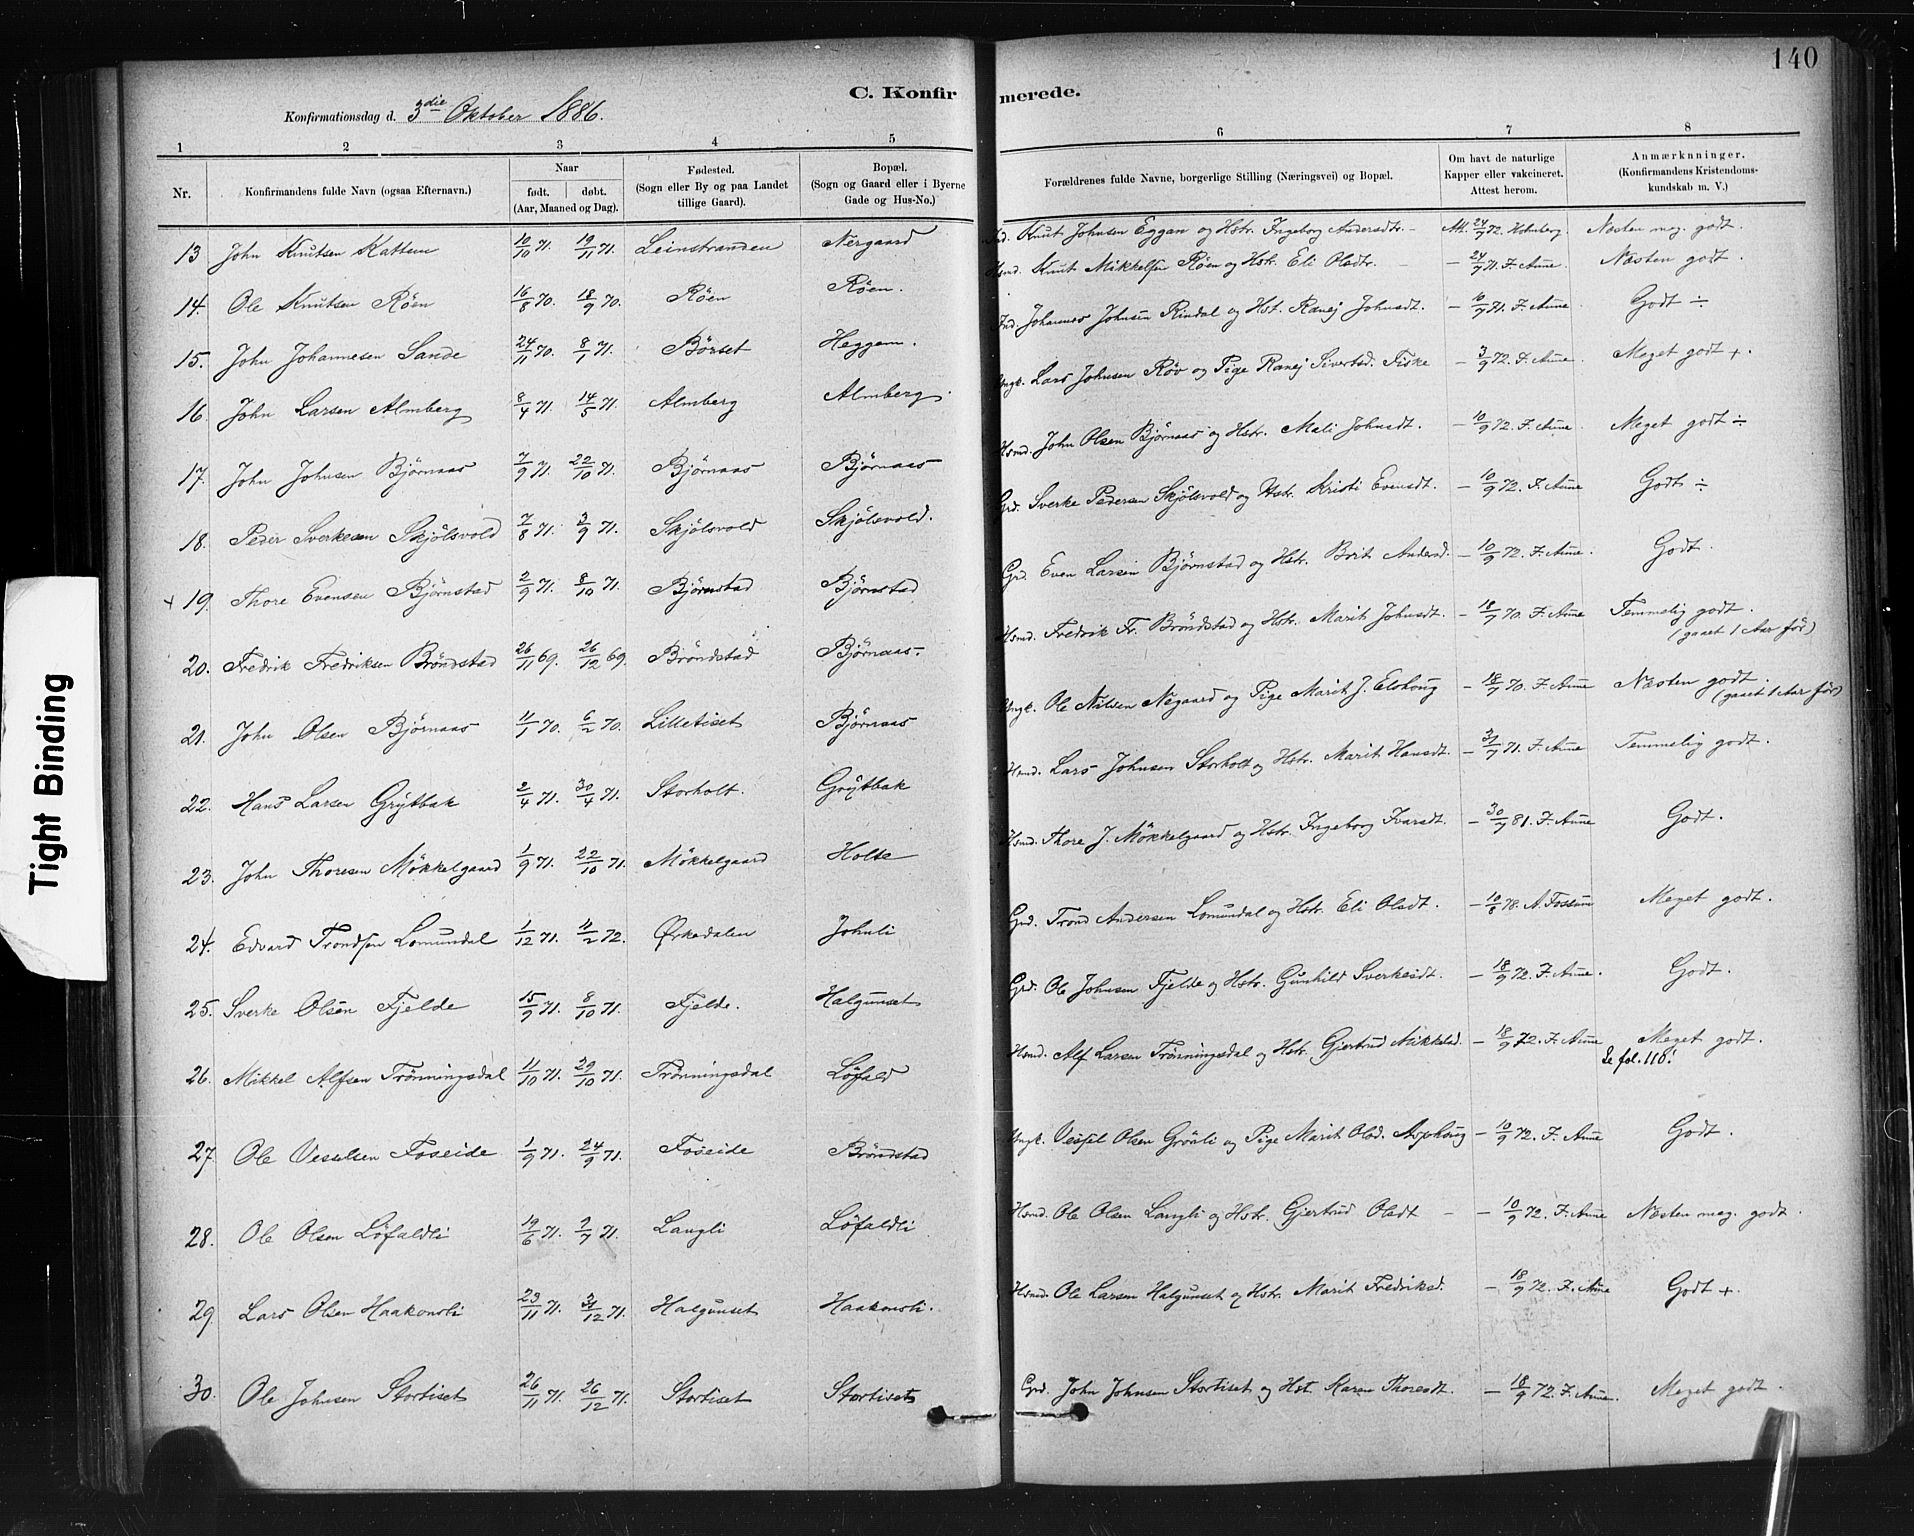 140
C. Konfirmerede.
Konfirmationsdag d. 3die Oktober 1886.
1 2 3 4 5 6 7 8
Nr. Konfirmandens fulde Navn (ogsaa Efternavn.) Naar født. døbt. (Aar, Maaned og Dag). Fødested. (Sogn eller By og paa Landet tillige Gaard). Bopæl. (Sogn og Gaard eller i Byerne Gade og Hus-No.) Forældrenes fulde Navne, borgerlige Stilling (Næringsvei) og Bopæl. Om havt de naturlige Kapper eller vakcineret. Attest herom. Anmærkninger. (Konfirmandens Kristendomskundskab m. V.)
13 John Knutsen Kattem 10/10 71. 19/11 71. Leinstranden Nergaard Knut Johnsen Eggan og Hstr. Ingeborg Andersdtr. Att. 24/9 72. Næsten meg. godt.
14. Ole Knutsen Röen 16/8 70. 18/9 70. Röen Röen. Hsmd. Knut Mikkelsen Röen og Hstr. Eli Olsdtr. – 24/7 71. F. Aune Næsten godt.
15. John Johannesen Sande 24/11 70. 8/1 71. Börset Heggem. Ind. Johannes Johnsen Rindal og Hst. Ranej Johnsdt. – 10/9 71. F. Aune Godt ÷
16. John Larsen Almberg 8/4 71. 14/5 71. Almberg Almberg. Ungk. Lars Johnsen Röv og Pige Ranej Sivertsd. Fiske – 3/9 72. F. Aune Meget godt +.
17. John Johnsen Bjørnaas 7/9 71. 22/10 71. Bjørnaas Bjørnaas Hsmd. John Olsen Bjørnaas og Hstr. Mali Johnsdt. – 10/9 72. F. Aune. Meget godt ÷
18. Peder Sverkesen Skjølsvold 7/8 71. 3/9 71. Skjølsvold Skjølsvold. Grd. Sverke Pedersen Skjølsvold og Hstr. Kristi Evensdt. – 10/9 72. F. Aune Godt ÷
+ 19. Thore Evensen Bjørnstad 2/9 71. 8/10 71. Bjørnstad Bjørnstad Grd. Even Larsen Bjørnstad og Hstr. Brit Andersd. – 10/9 72. F. Aune. Godt.
20. Fredrik Fredriksen Bröndstad 26/11 69. 26/12 69. Bröndstad Bjørnaas. Hsmd. Fredrik Fr. Bröndstad og Hstr. Marit Johnsdt. – 18/7 70. F. Aune Temmelig godt.
(gaaet 1 Aar før)
21. John Olsen Bjørnaas 11/1 70. 6/2 70. Lilletiset Bjørnaas Ungk. Ole Nilsen Negaard og Pige Marit J. Elshoug – 18/7 70. F. Aune Næsten godt.
(gaaet 1 Aar før)
22. Hans Larsen Grytbak 2/4 71. 30/4 71. Storholt. Grytbak Hsmd. Lars Johnsen Storholt og Hstr. Marit Hansdt. – 31/7 71. F. Aune Temmelig godt.
23. John Thoresen Mökkelgaard 1/9 71. 22/10 71. Mökkelgaard Holte Hsmd. Thore J. Mökkelgaard og Hstr. Ingeborg Ivarsdt. – 30/7 81. F. Aune Godt.
24. Edvard Trondsen Lomundal 1/12 71. 11/2 72. Ørkedalen Johnli Grd. Trond Andersen Lomundal og Hstr. Eli Olsdt. – 10/8 78. A. Fossum Meget godt.
25. Sverke Olsen Fjelde 15/9 71. 8/10 71. Fjelde. Halgunset Grd. Ole Johnsen Fjelde og Hstr. Gunhild Sverkesdt. – 18/9 72. F. Aune. Godt.
26. Mikkel Alfsen Trönningsdal 11/10 71. 29/10 71. Trönningsdal Löfald Hsmd. Alf Larsen Trönningsdal og Hstr. Gjertrud Mikkelsd. – 18/9 72. F. Aune Meget godt.
Se fol. 116!
27. Ole Vesselsen Foseide 1/9 71. 24/9 71. Foseide Bröndstad Ungk. Vessel Olsen Grönli og Pige Marit Olsd. Asphoug – 10/9 72. F. Aune Godt.
28. Ole Olsen Löfaldli 19/6 71. 9/7 71. Langli Löfaldli Hsmd. Ole Olsen Langli og Hstr. Gjertrud Olsdt – – 10/9 72. F. Aune Næsten meg. godt.
29. Lars Olsen Haakonsli 23/11 71. 31/12 71. Halgunset Haakonsli. Hsmd. Ole Larsen Halgunset og Hstr. Marit Fredriksd. – 18/9 72. F. Aune Godt +.
30. Ole Johnsen Stortiset 26/11 71. 26/12 71. Stortiset Stortiset Grd. John Johnsen Stortiset og Hst. Maren Thoresdt. – 18/9 72. F. Aune. Meget godt.
Tight Binding